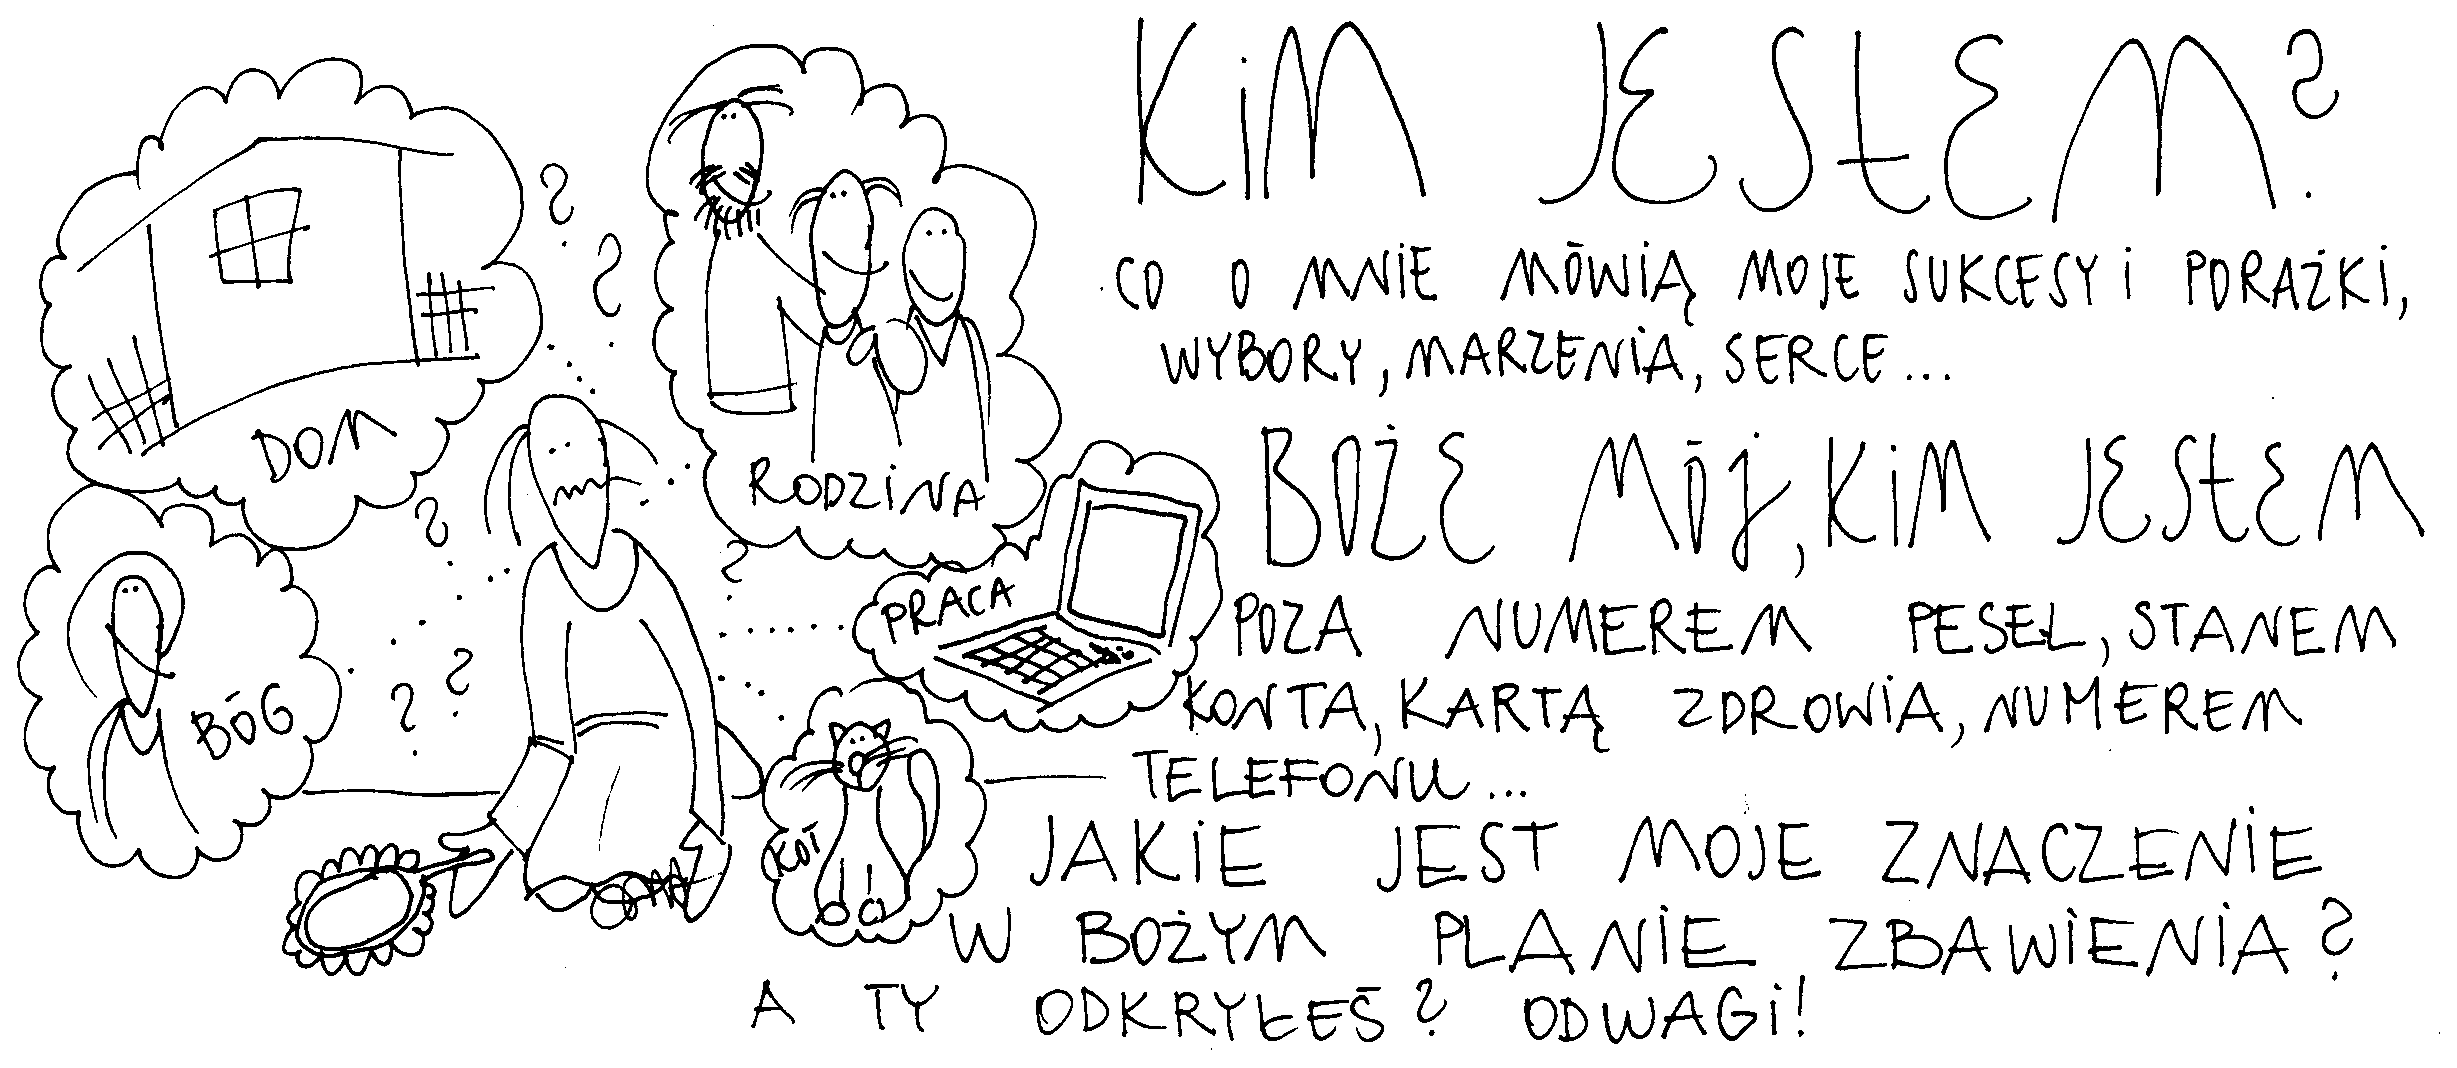 KiM JESTEM?
CO O MNIE MÓWIĄ MOJE SUKCESY i PORAŻKI,
WYBORY, MARZENIA, SERCE...
BOŻE MÓJ, KiM JESTEM
POZA NUMEREM PESEL, STANEM
KONTA, KARTĄ ZDROWIA, NUMEREM
TELEFONU...
JAKIE JEST MOJE ZNACZENIE
W BOŻYM PLANIE ZBAWIENIA?
A TY ODKRYŁEŚ? ODWAGi!
DOM
RODZINA
BÓG
PRACA
KOT